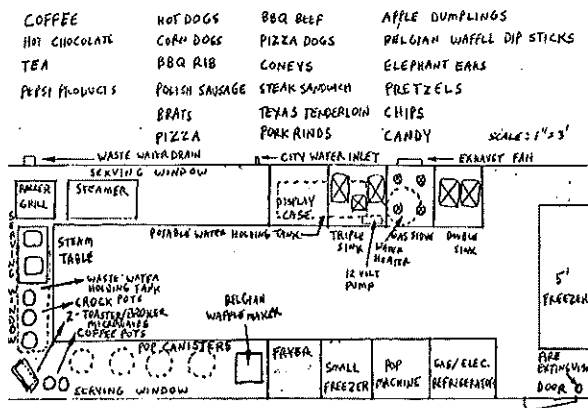 COFFEE
HOT CHOCOLATE
TEA
PEPSI PRODUCTS
HOT DOGS
CORN DOGS
BBQ RIB
POLISH SAUSAGE
BRATS
PIZZA
BBQ BEEF
PIZZA DOGS
CONEYS
STEAK SANDWICH
TEXAS TENDERLOIN
PORK RINDS
APPLE DUMPLINGS
BELGIAN WAFFLE DIP STICKS
ELEPHANT EARS
PRETZELS
CHIPS
CANDY
SCALE: 1"=3'
WASTE WATER DRAIN
CITY WATER INLET
EXHAUST FAN
SERVING WINDOW
ROLLER
GRILL
STEAMER
DISPLAY
CASE
POTABLE WATER HOLDING TANK
TRIPLE
SINK
GAS STOVE
WATER
HEATER
DOUBLE
SINK
12 VOLT
PUMP
SERVING WINDOW
STEAM
TABLE
WASTE WATER
HOLDING TANK
CROCK POTS
2-TOASTER/BROILER
MICROWAVES
COFFEE POTS
POP CANISTERS
BELGIAN
WAFFLE MAKER
SERVING WINDOW
FRYER
SMALL
FREEZER
POP
MACHINE
GAS/ELEC.
REFRIGERATOR
5'
FREEZER
FIRE
EXTINGUISH
DOOR